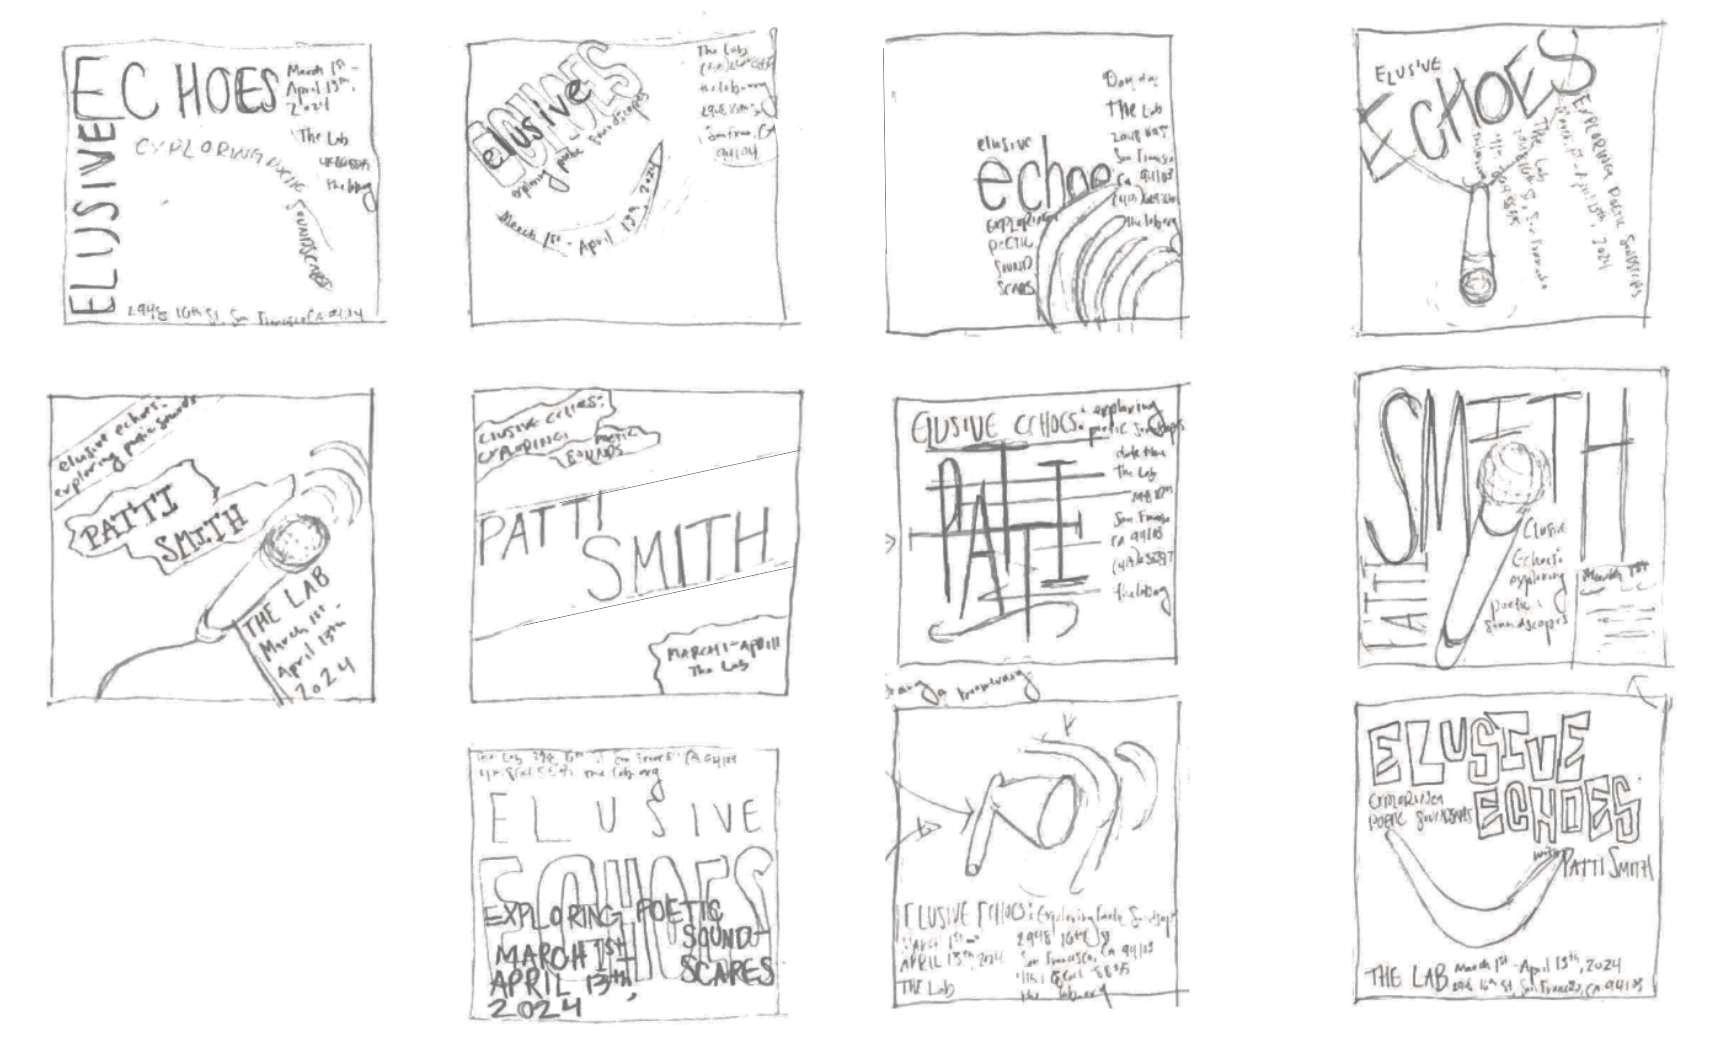 ECHOES
ELUSIVE
March 1st -
April 13th,
2024
The Lab
EXPLORING POETIC SOUNDSCAPES
2948 16th St, San Francisco CA
ECHOES
elusive
exploring poetic soundscapes
March 1st - April 13th, 2024
The Lab
2948 16th St
San Fran, CA
94104
elusive
echoe
EXPLORING
POETIC
SOUND
SCAPES
THE Lab
San Francisco
CA 94103
thelaborg
ELUSIVE
ECHOES
EXPLORING POETIC SOUNDSCAPES
March 1st - April 13th, 2024
The Lab
2948 16th St, San Francisco
elusive echoes:
exploring poetic sounds
PATTI
SMITH
THE LAB
March 1st -
April 13th
2024
ELUSIVE ECHOES:
EXPLORING
POETIC
SOUNDS
PATTI
SMITH
MARCH 1 - APRIL 11
The Lab
ELUSIVE ECHOES: exploring
poetic soundscapes
PATTI
date time
The Lab
San Francisco
CA 94103
thelaborg
SMITH
PATTI
Elusive
Echoes:
exploring
poetic
soundscapes
March 1st
The Lab 2948 16th St San Francisco CA 94103
the lab.org
ELUSIVE
ECHOES
EXPLORING POETIC
SOUND-
SCAPES
MARCH 1ST -
APRIL 13th,
2024
ELUSIVE ECHOES: Exploring Poetic Soundscapes
MARCH 1st -
APRIL 13th, 2024
THE Lab
2948 16th St
San Francisco, CA 94103
the lab.org
ELUSIVE
ECHOES
EXPLORING
POETIC SOUNDSCAPES
with
PATTI SMITH
THE LAB
March 1st - April 13th, 2024
2948 16th St, San Francisco, CA 94103